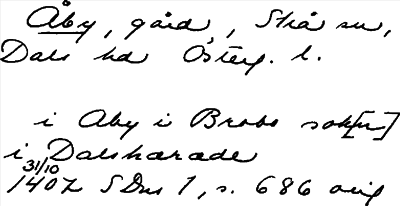 Åby, gård, Strå sn,
Dals hd Österg. l.
i Aby i Brobo sokn]
i Dalsharade
31/10
1407 SDns 1, s. 686 orig